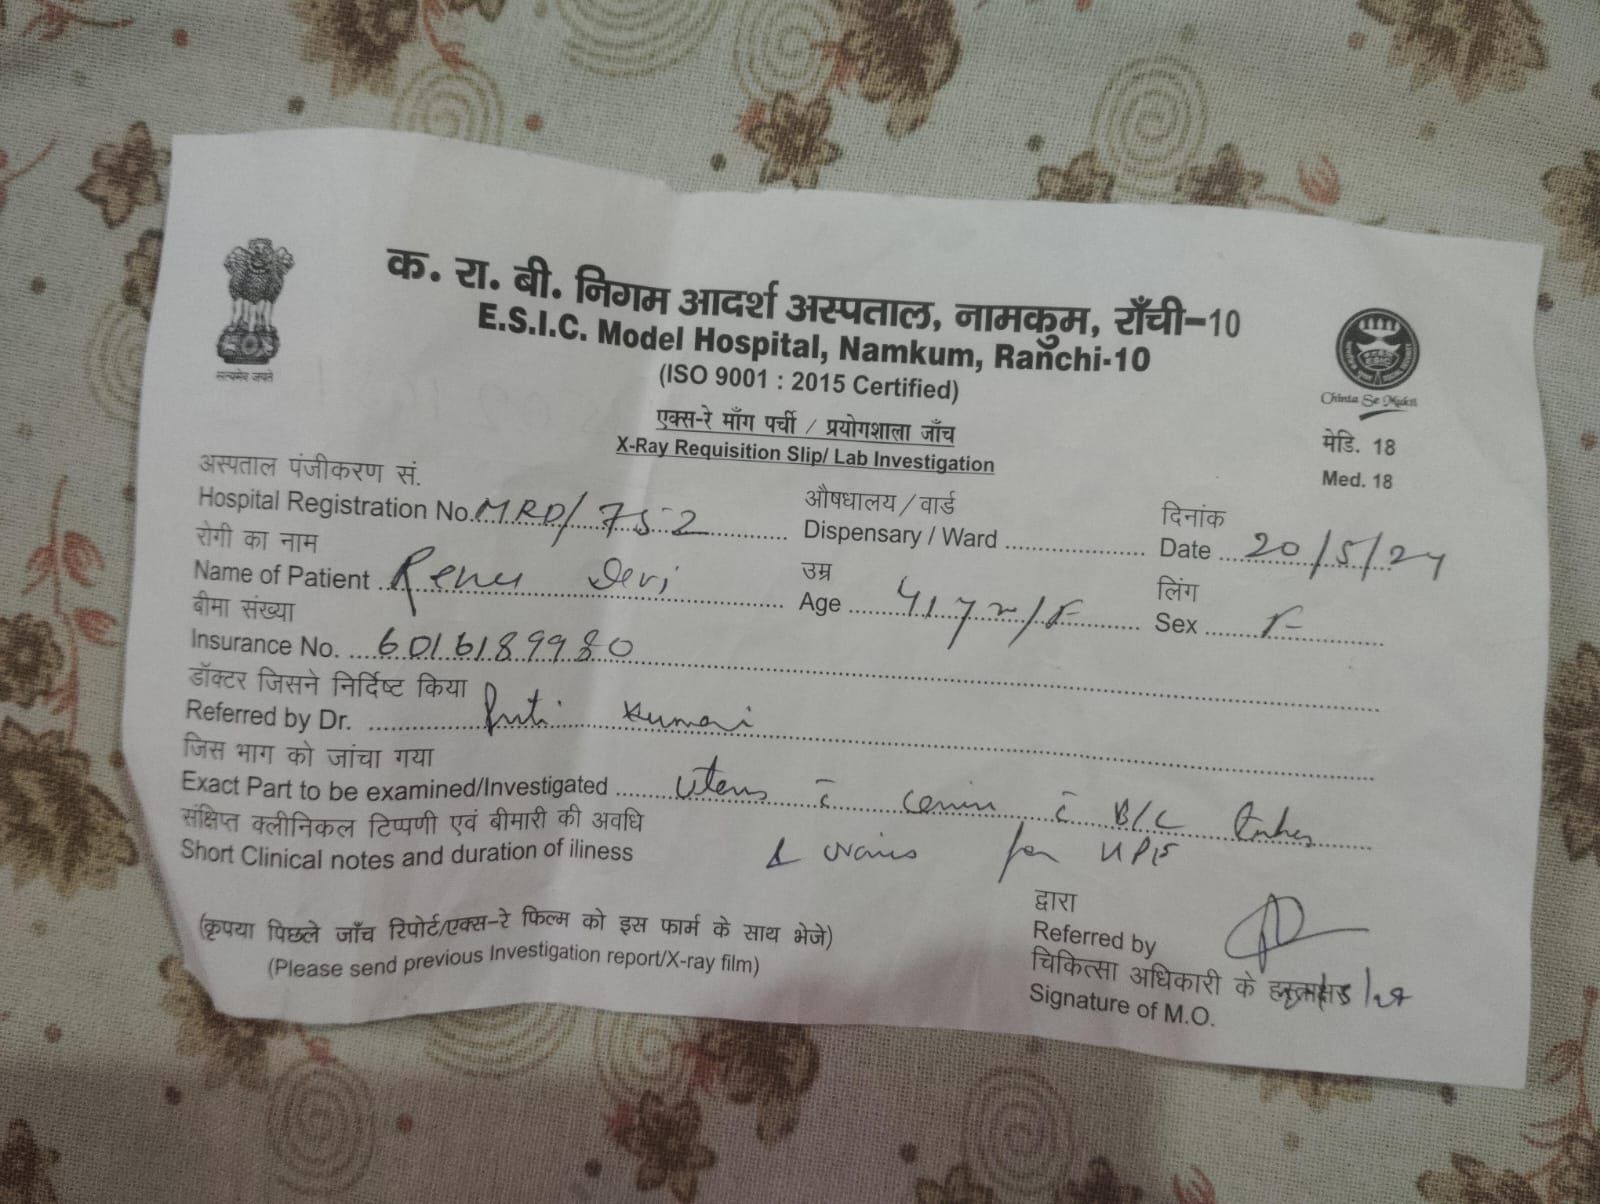 सत्यमेव जयते
क. रा. बी. निगम आदर्श अस्पताल, नामकुम, राँची-10
E.S.I.C. Model Hospital, Namkum, Ranchi-10
(ISO 9001 : 2015 Certified)
Chinta Se Mukti
एक्स-रे माँग पर्ची / प्रयोगशाला जाँच
X-Ray Requisition Slip/ Lab Investigation
मेडि. 18
Med. 18
अस्पताल पंजीकरण सं. औषधालय / वार्ड दिनांक
Hospital Registration No. MRD/752 Dispensary / Ward Date 20/5/24
रोगी का नाम उम्र लिंग
Name of Patient Renu Devi Age 41yr/F Sex F
बीमा संख्या
Insurance No. 6016189980
डॉक्टर जिसने निर्दिष्ट किया
Referred by Dr. Kumari
जिस भाग को जांचा गया
Exact Part to be examined/Investigated uterus c̄ cervix c̄ B/L tubes
संक्षिप्त क्लीनिकल टिप्पणी एवं बीमारी की अवधि
Short Clinical notes and duration of iliness & ovaries for
द्वारा
Referred by
(कृपया पिछले जाँच रिपोर्ट/एक्स-रे फिल्म को इस फार्म के साथ भेजे)
(Please send previous Investigation report/X-ray film)
चिकित्सा अधिकारी के हस्ताक्षर
Signature of M.O.